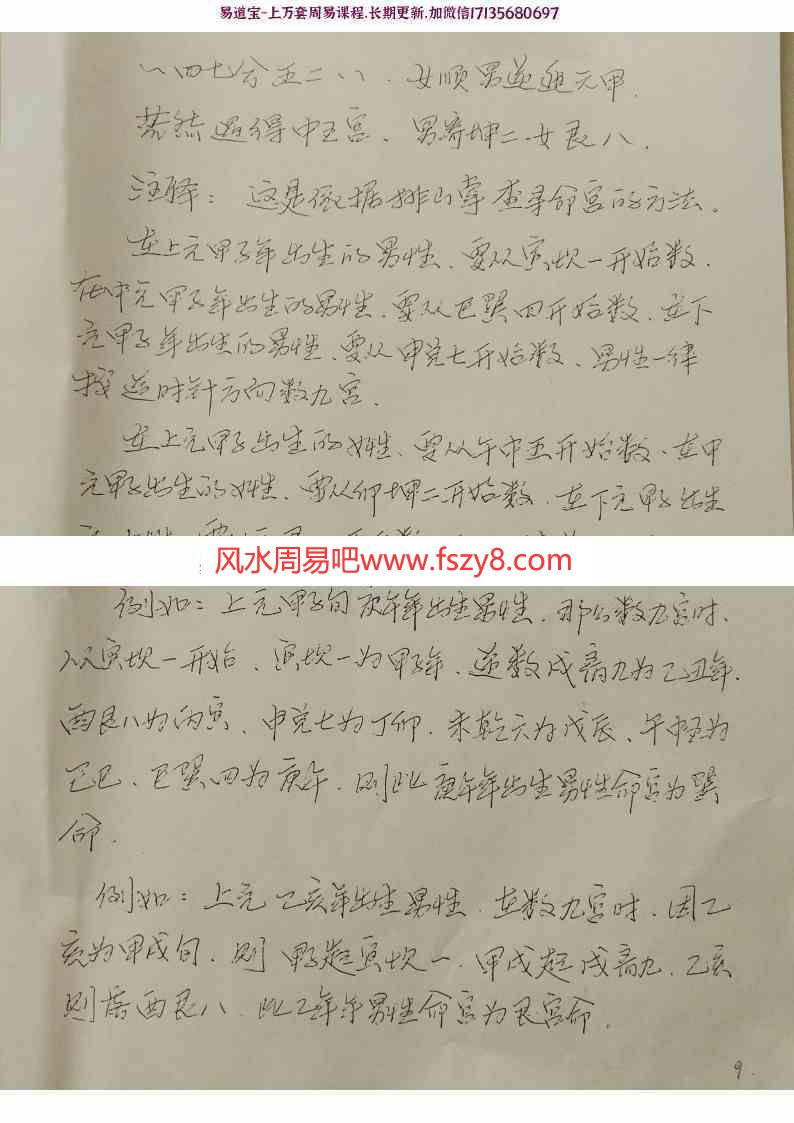 易道宝-上万套周易课程.长期更新.加微信17135680697
一四七分五二八．女顺男逆起元甲．
若然遇得中五宫、男寄坤二女艮八．
注释：这是依据排山掌查寻命宫的方法。
在上元甲子年出生的男性、要从寅坎一开始数．
在中元甲子年出生的男性、要从巳巽四开始数．在下
元甲子年出生的男性、要从申兑七开始数、男性一律
按逆时针方向数九宫．
在上元甲子出生的女性、要从午中五开始数、在中
元甲子出生的女性、要从卯坤二开始数、在下元甲子出生
风水周易吧www.fszy8.com
例如：上元甲子旬庚午年出生男性．那么数九宫时．
从寅坎一开始．寅坎一为甲子年．逆数戌离九为乙丑年．
酉艮八为丙寅．申兑七为丁卯．未乾六为戊辰、午中五为
己巳、巳巽四为庚午．则此庚午年出生男性命宫为巽
命．
例如：上元乙亥年出生男性．在数九宫时．因乙
亥为甲戌旬．则甲子起寅坎一．甲戌起戌离九．乙亥
则落酉艮八．此乙年男性命宫为艮宫命．
9.